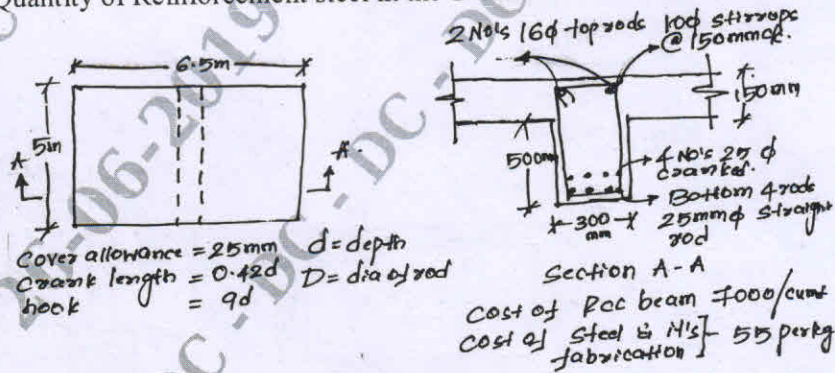 Quantity of Reinforcement steel in the
6.5m
5m
A
A
Cover allowance = 25mm
Crank length = 0.42d
hook = 9d
d = depth
D = dia of rod
2 No's 16φ top rods
10φ stirrops
@ 150mm c/c.
150mm
500mm
4 No's 25 φ
cranked.
Bottom 4 rods
25mm φ straight
rod
300
mm
Section A-A
Cost of Rcc beam 7000/cumt
Cost of Steel & it's
fabrication] - 55 per kg
26-06-2019
DC - DC - DC
DC - DC